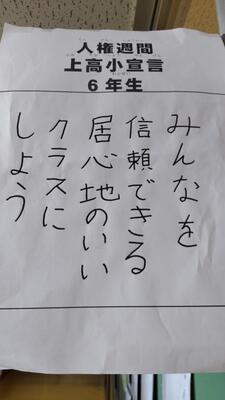 人権週間
上高小宣言
6年生
みんなを
信頼できる
居心地のいい
クラスに
しよう